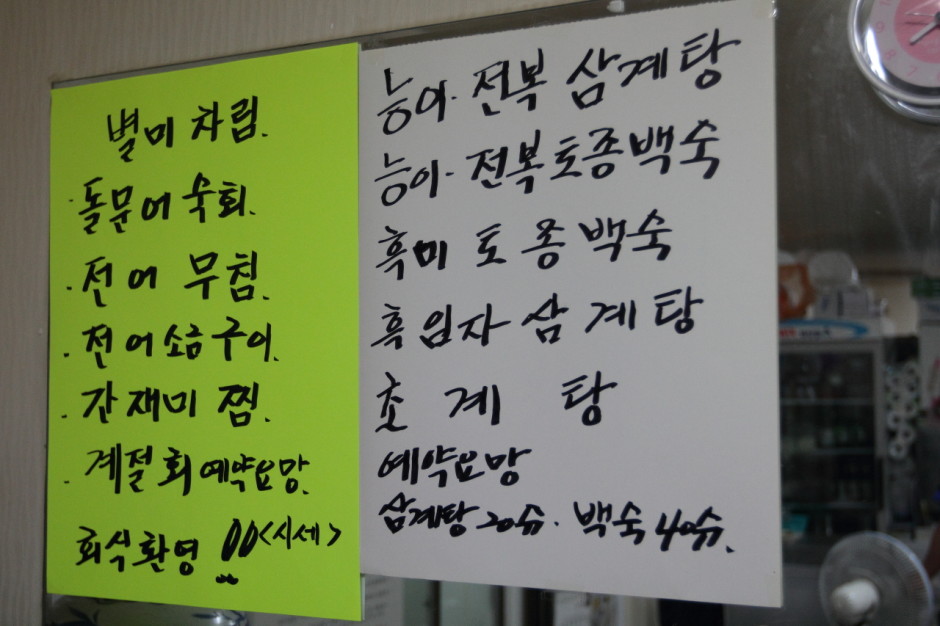 별미차림.
· 돌문어숙회.
· 전어 무침.
· 전어소금구이.
· 간재미 찜.
· 계절회예약요망.
회식환영 !! <시세>
능이·전복삼계탕
능이·전복토종백숙
흑미토종백숙
흑임자삼계탕
초계탕
예약요망
삼계탕 20分. 백숙 40分.